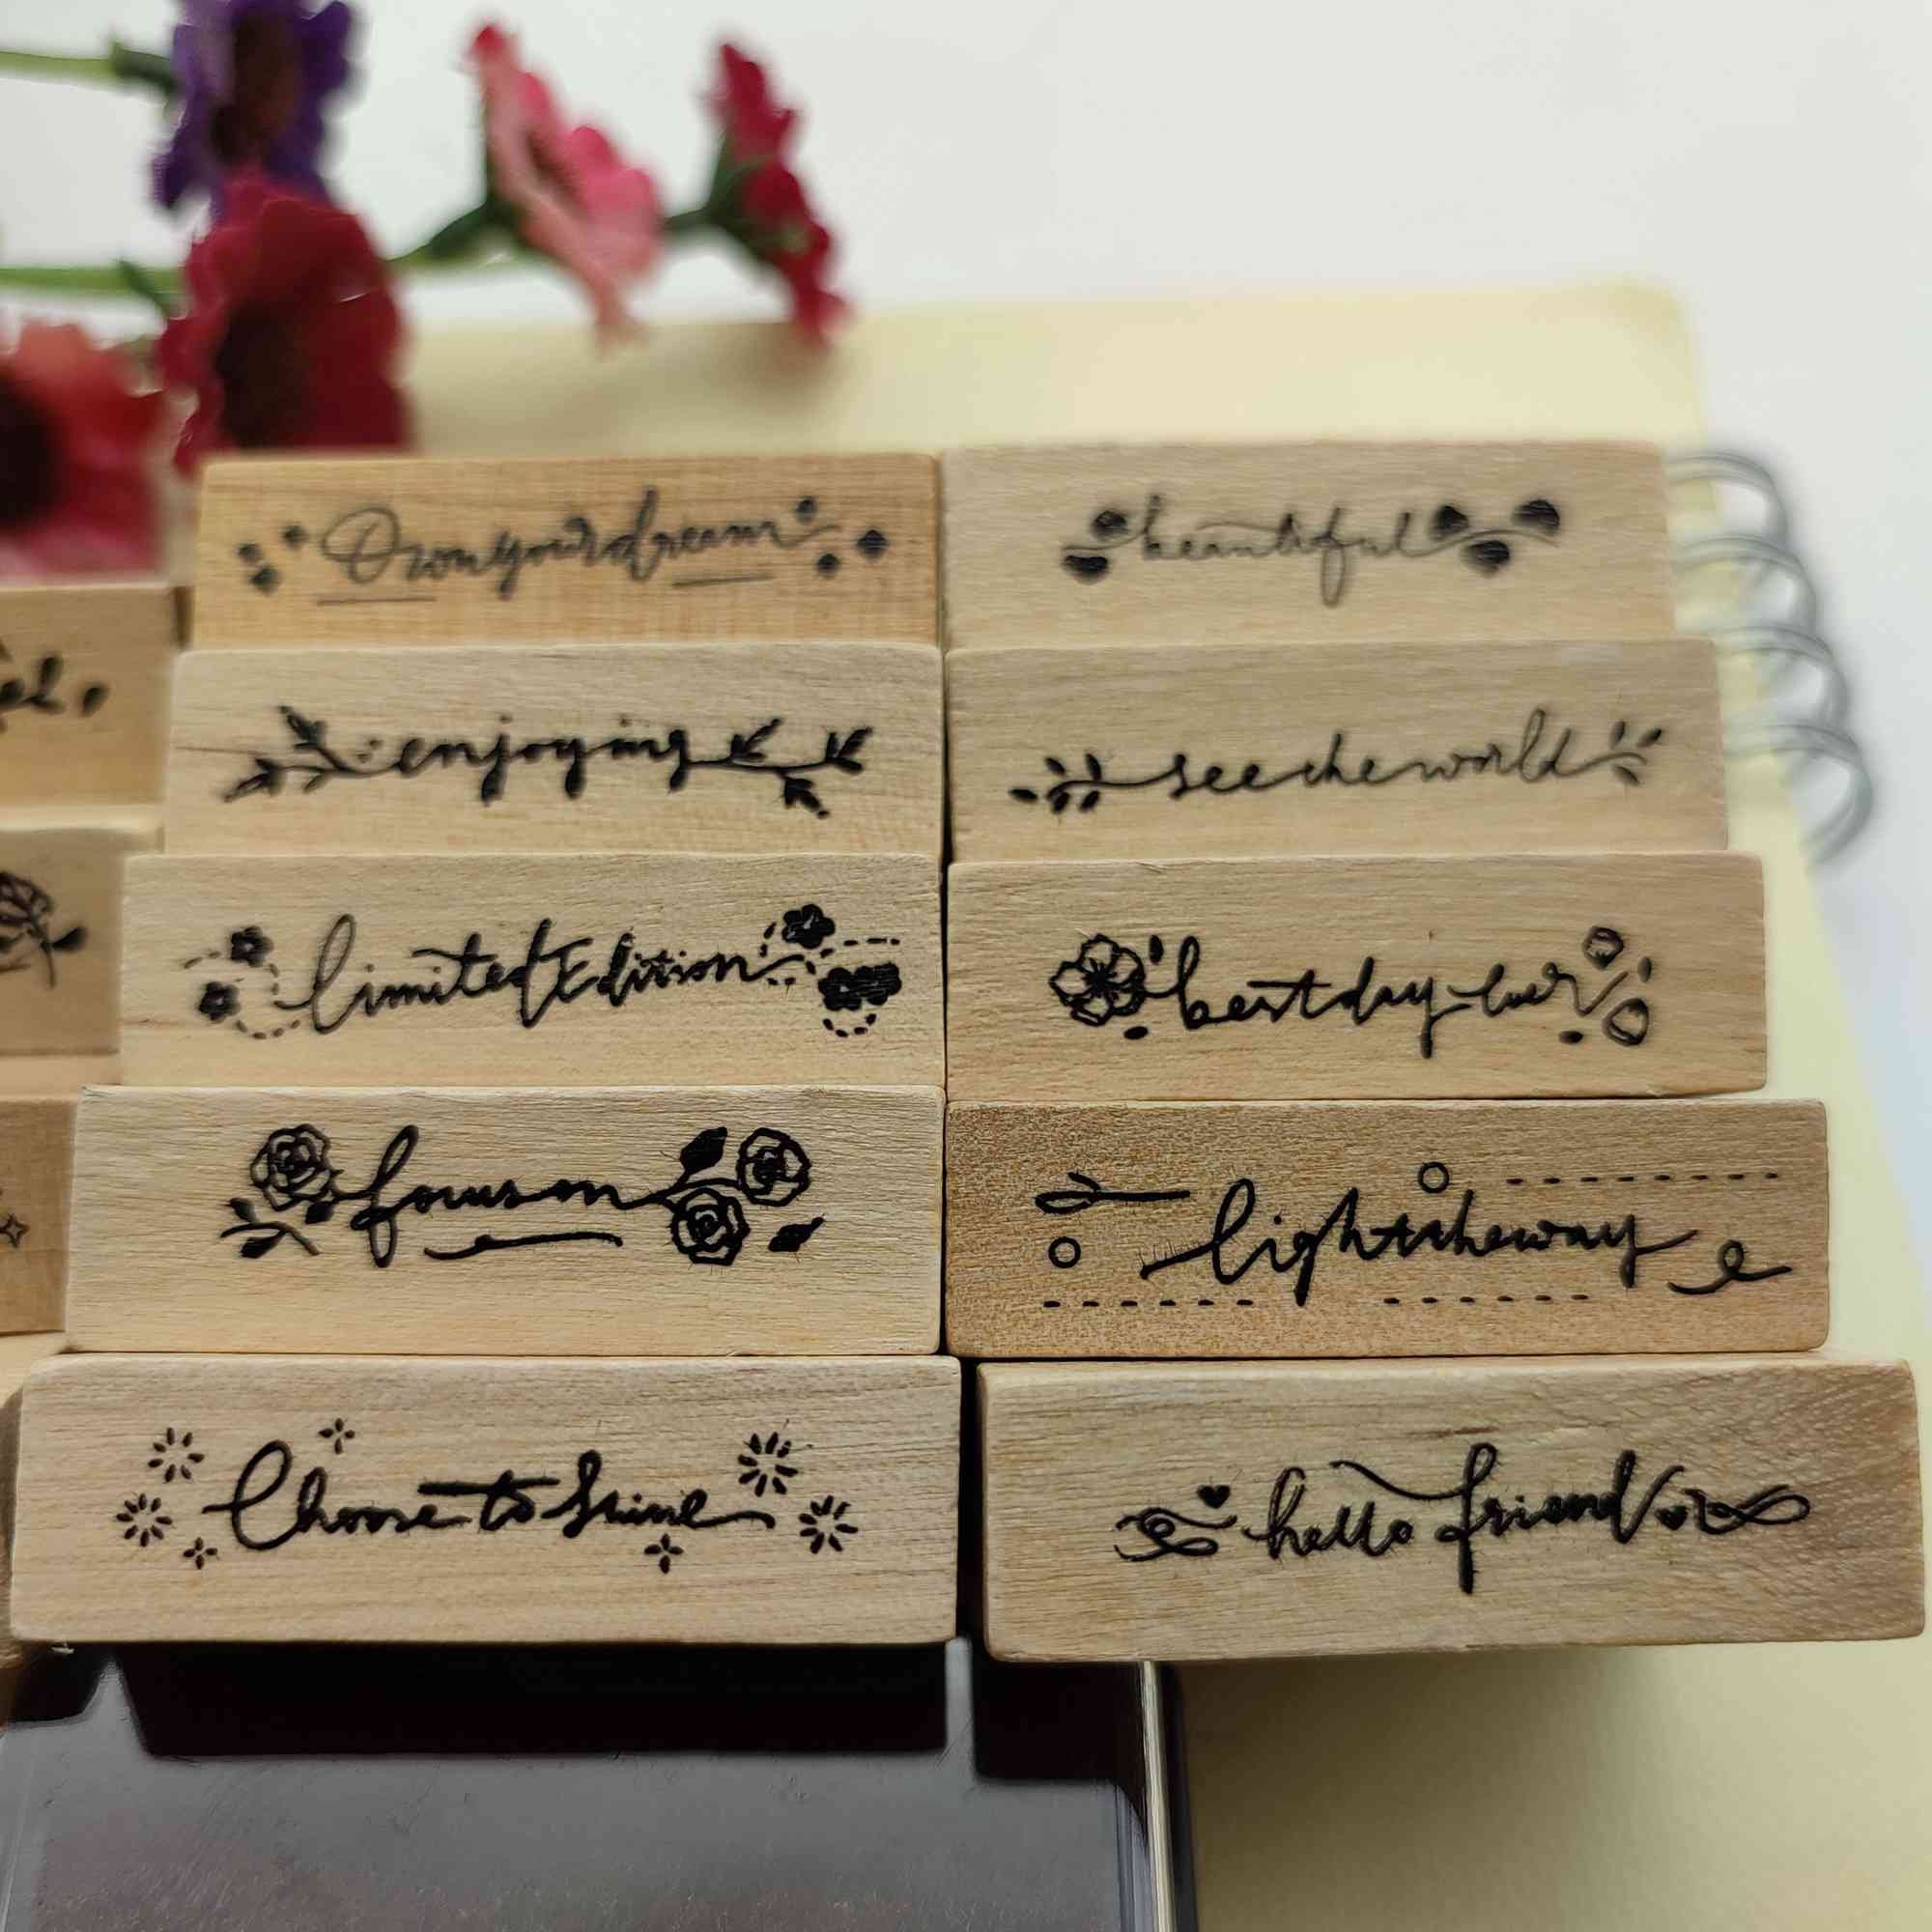 Own your dream
beautiful
enjoying
see the world
limited Edition
best day ever
focus on
light the way
Choose to shine
hello friend